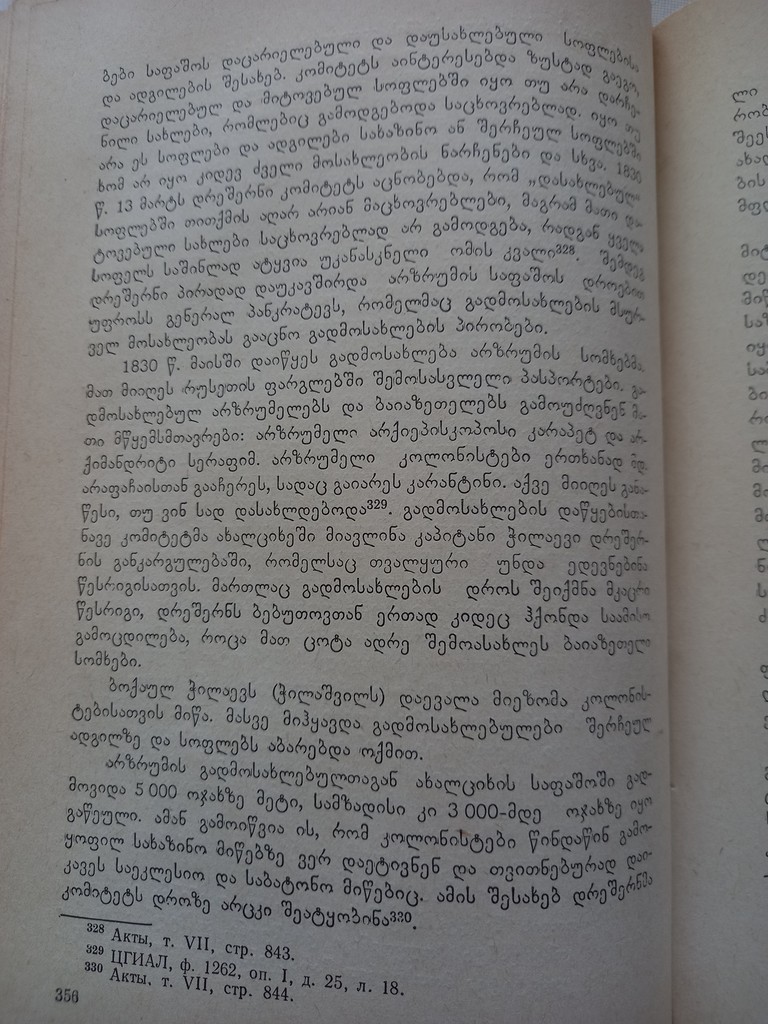 ბები საფაშოს დაცარიელებული და დაუსახლებული სოფლებისა
და ადგილების შესახებ. კომიტეტს აინტერესებდა ზუსტად გაეგო,
დაცარიელებულ და მიტოვებულ სოფლებში იყო თუ არა დარჩე-
ნილი სახლები, რომლებიც გამოდგებოდა საცხოვრებლად. იყო თუ
არა ეს სოფლები და ადგილები სახაზინო ან შერჩეულ სოფლებში
ხომ არ იყო კიდევ ძველი მოსახლეობის ნარჩენები და სხვა. 1830
წ. 13 მარტს დრეშერნი კომიტეტს აცნობებდა, რომ „დასახლებულ
სოფლებში თითქმის აღარ არიან მაცხოვრებლები, მაგრამ მათი და-
ტოვებული სახლები საცხოვრებლად არ გამოდგება, რადგან ყველა
სოფელს საშინლად ატყვია უკანასკნელი ომის კვალი328. შემდეგ
დრეშერნი პირადად დაუკავშირდა არზრუმის საფაშოს დროებით
უფროსს გენერალ პანკრატევს, რომელმაც გადმოსახლების მსურ-
ველ მოსახლეობას გააცნო გადმოსახლების პირობები.
1830 წ. მაისში დაიწყეს გადმოსახლება არზრუმის სომხებმა.
მათ მიიღეს რუსეთის ფარგლებში შემოსასვლელი პასპორტები. გა-
დმოსახლებულ არზრუმელებს და ბაიაზეთელებს გამოუძღვნენ მა-
თი მწყემსმთავრები: არზრუმელი არქიეპისკოპოსი კარაპეტ და არ-
ქიმანდრიტი სერაფიმ. არზრუმელი კოლონისტები ერთხანად მდ.
არაფაჩაისთან გააჩერეს, სადაც გაიარეს კარანტინი. აქვე მიიღეს განა-
წესი, თუ ვინ სად დასახლდებოდა329. გადმოსახლების დაწყებისთა-
ნავე კომიტეტმა ახალციხეში მიავლინა კაპიტანი ჭილაევი დრეშერ-
ნის განკარგულებაში, რომელსაც თვალყური უნდა ედევნებინა
წესრიგისათვის. მართლაც გადმოსახლების დროს შეიქმნა მკაცრი
წესრიგი, დრეშერნს ბებუთოვთან ერთად კიდეც ჰქონდა საამისო
გამოცდილება, როცა მათ ცოტა ადრე შემოასახლეს ბაიაზეთელი
სომხები.
ბოქაულ ჭილაევს (ჭილაშვილს) დაევალა მიეზომა კოლონის-
ტებისათვის მიწა. მასვე მიჰყავდა გადმოსახლებულები შერჩეულ
ადგილზე და სოფლებს აბარებდა ოქმით.
არზრუმის გადმოსახლებულთაგან ახალციხის საფაშოში გად-
მოვიდა 5 000 ოჯახზე მეტი, სამზადისი კი 3 000-მდე ოჯახზე იყო
გაწეული. ამან გამოიწვია ის, რომ კოლონისტები წინდაწინ გამო-
ყოფილ სახაზინო მიწებზე ვერ დაეტივნენ და თვითნებურად დაი-
კავეს საეკლესიო და საბატონო მიწებიც. ამის შესახებ დრეშერნმა
კომიტეტს დროზე არცკი შეატყობინა330.
328 Акты, т. VII, стр. 843.
329 ЦГИАЛ, ф. 1262, оп. I, д. 25, л. 18.
330 Акты. т. VII, стр. 844.
356